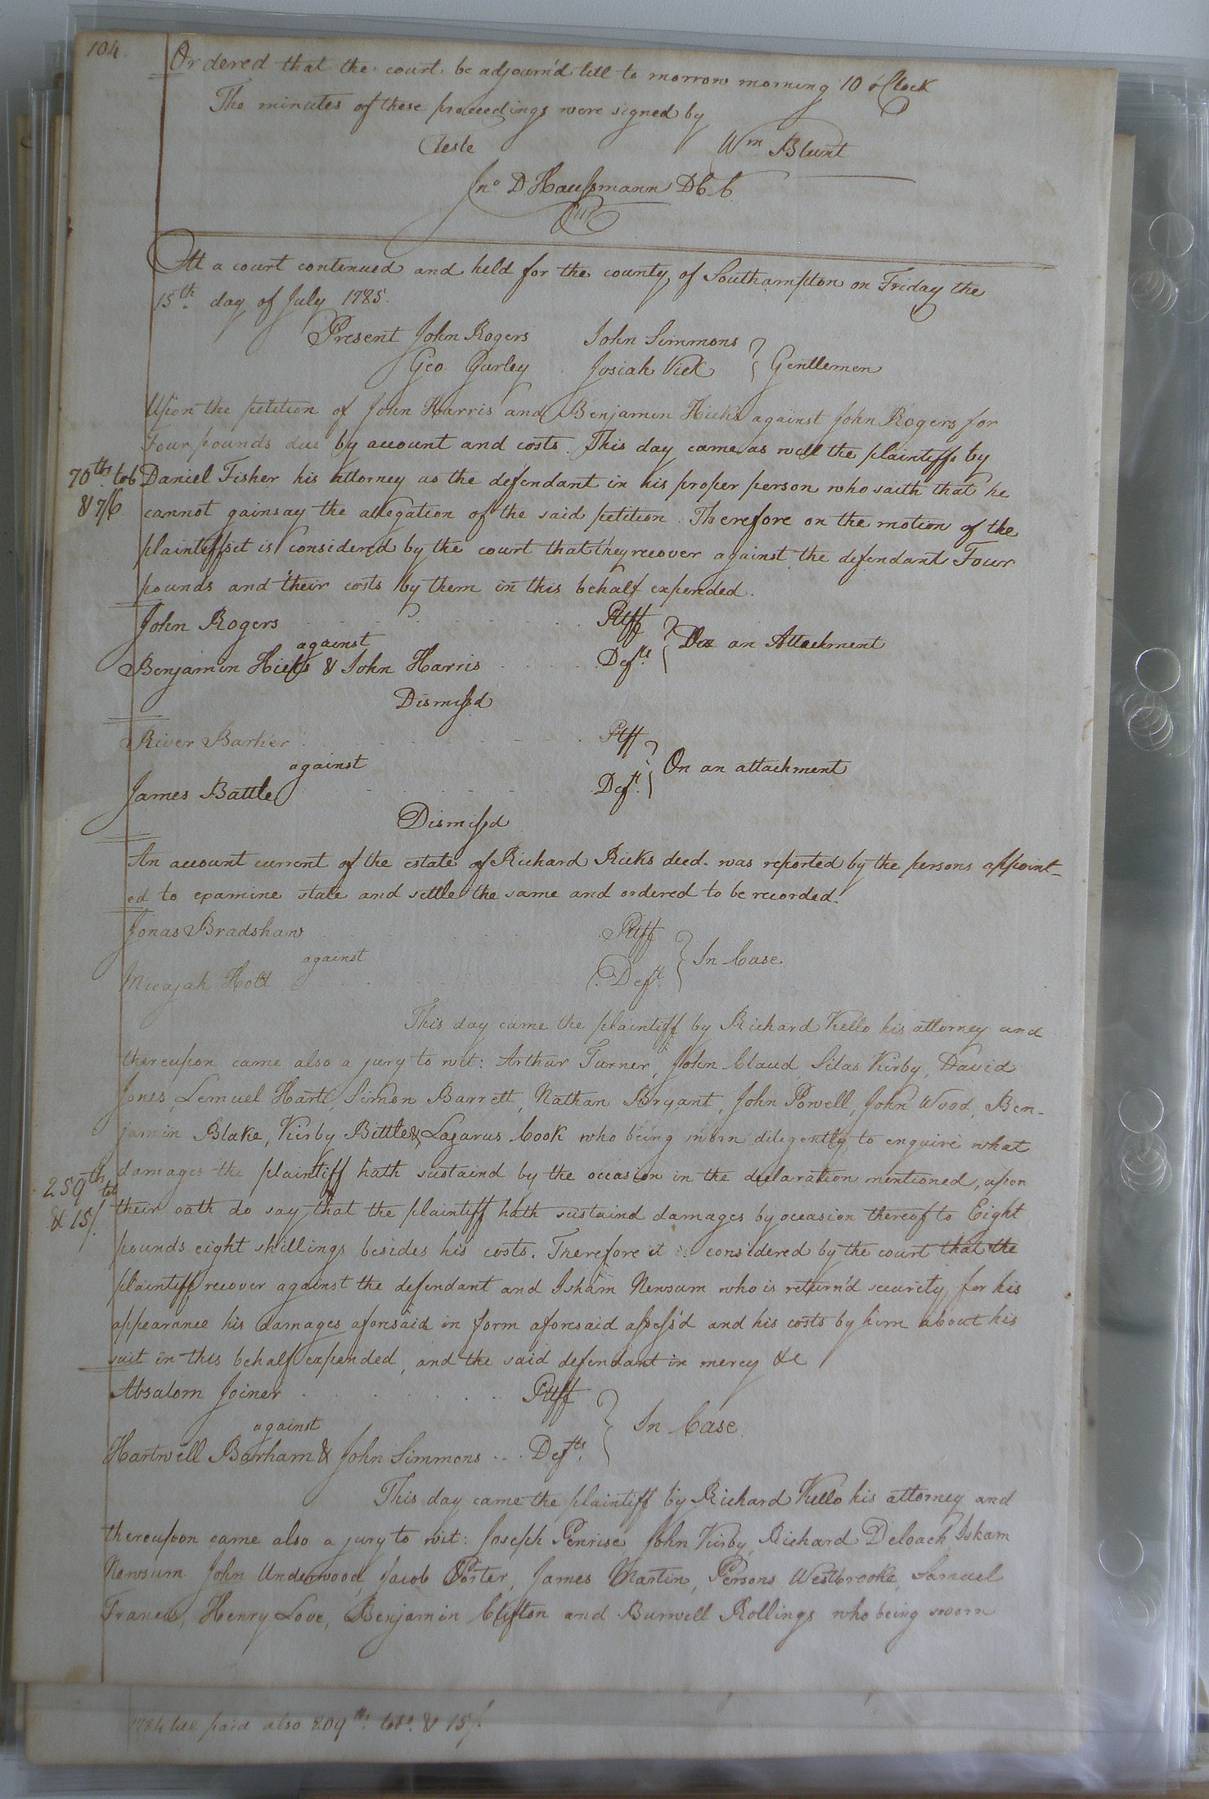 104.
Ordered that the court be adjourn'd till to morrow morning 10 oClock
The minutes of these proceedings were signed by
Teste Wm Blunt
Jno D Haussmann D.C.C
At a court continued and held for the county of Southampton on Friday the
15th day of July 1785.
Present John Rogers John Simmons
Geo. Gurley Josiah Vick } Gentlemen
Upon the petition of John Harris and Benjamin Hicks against John Rogers for
Four pounds due by account and costs. This day came as well the plaintiffs by
70th tob Daniel Fisher his attorney as the defendant in his proper person who saith that he
& 7/6 cannot gainsay the allegation of the said petition. Therefore on the motion of the
plaintiffs it is considered by the court that they recover against the defendant Four
pounds and their costs by them in this behalf expended.
John Rogers Pltff
against } On an Attachment
Benjamin Hicks & John Harris Defts
Dismissd
River Barker Pltff
against } On an attachment
James Battle Deft.
Dismissd
An account current of the estate of Richard Ricks decd. was reported by the persons appoint-
ed to examine state and settle the same and ordered to be recorded.
Jonas Bradshaw Pltff
against } In Case
Micajah Holt Deft.
This day came the plaintiff by Richard Kello his attorney and
thereupon came also a jury to wit: Arthur Turner, John Claud, Silas Kirby, David
Jones, Lemuel Hart, Simon Barrett, Nathan Bryant, John Powell, John Wood, Ben-
jamin Blake, Kirby Bittle & Lazarus Cook who being sworn diligently to enquire what
damages the plaintiff hath sustaind by the occasion in the declaration mentioned, upon
259th tob their oath do say that the plaintiff hath sustaind damages by occasion thereof to Eight
& 15/. pounds eight shillings besides his costs. Therefore it is considered by the court that the
plaintiff recover against the defendant and Isham Newsum who is return'd security for his
appearance his damages aforesaid in form aforesaid assess'd and his costs by him about his
suit in this behalf expended, and the said defendant in mercy &c
Absalom Joiner Pltff
against } In Case
Hartwell Barham & John Simmons Defts.
This day came the plaintiff by Richard Kello his attorney and
thereupon came also a jury to wit: Joseph Penrise John Kirby, Richard Deloach, Isham
Newsum John Underwood, Jacob Porter, James Martin, Persons Westbrooke, Samuel
Francis, Henry Love, Benjamin Clifton and Burwell Rollings who being sworn
1784 paid also 209th tobo. & 15/